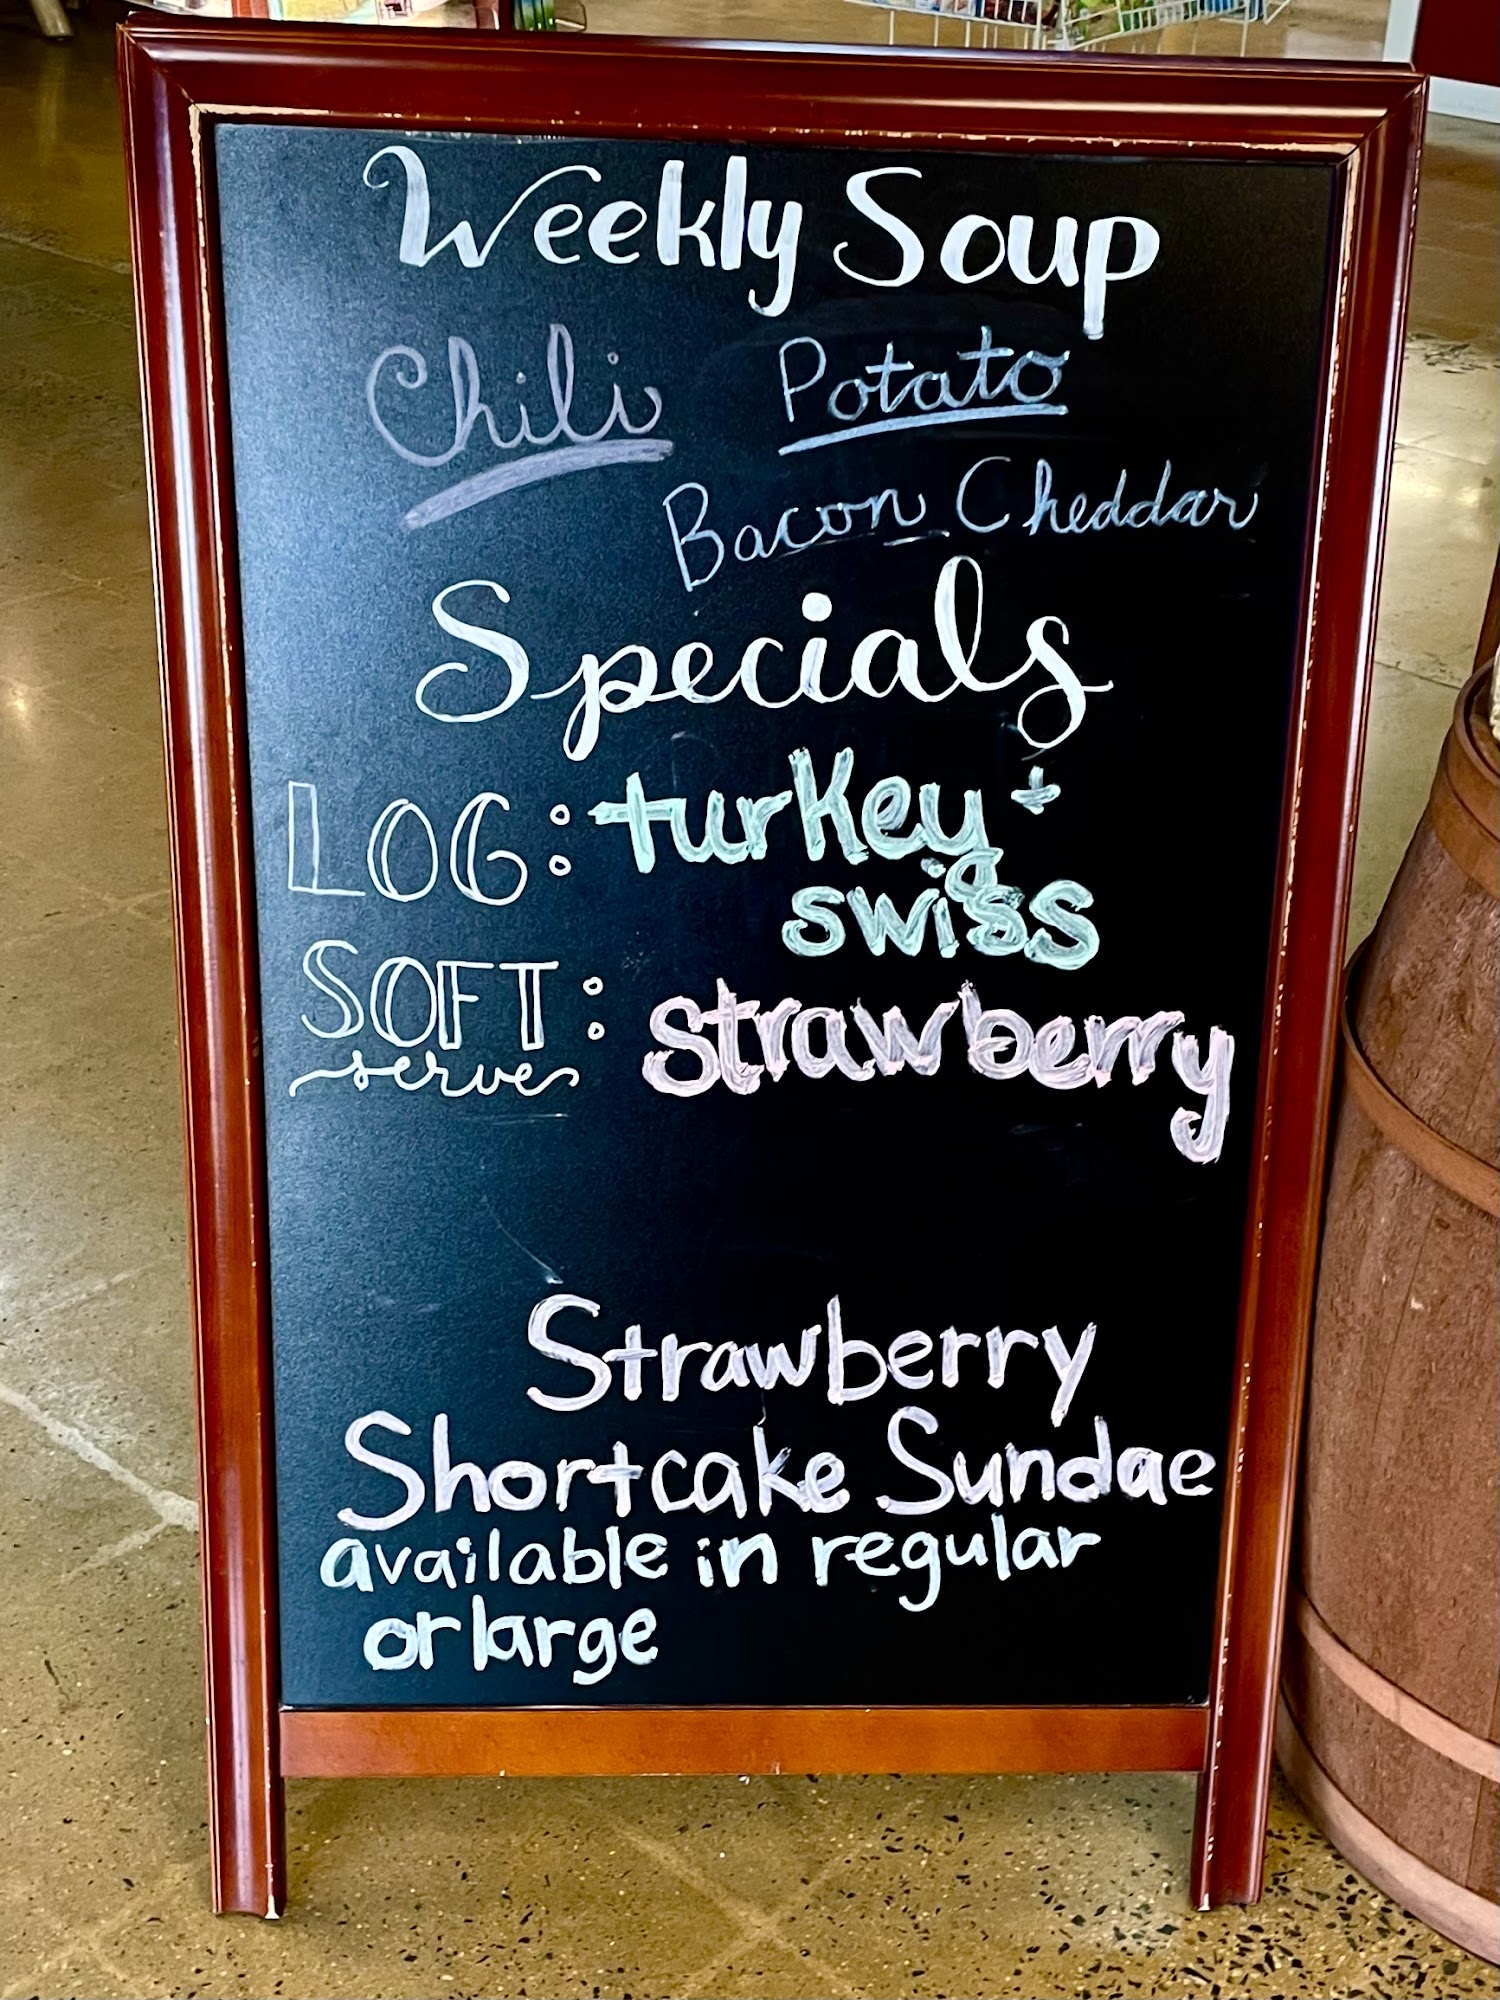 Weekly Soup
Chili Potato
Bacon Cheddar
Specials
LOG: turkey +
swiss
SOFT: strawberry
serve
Strawberry
Shortcake Sundae
available in regular
or large